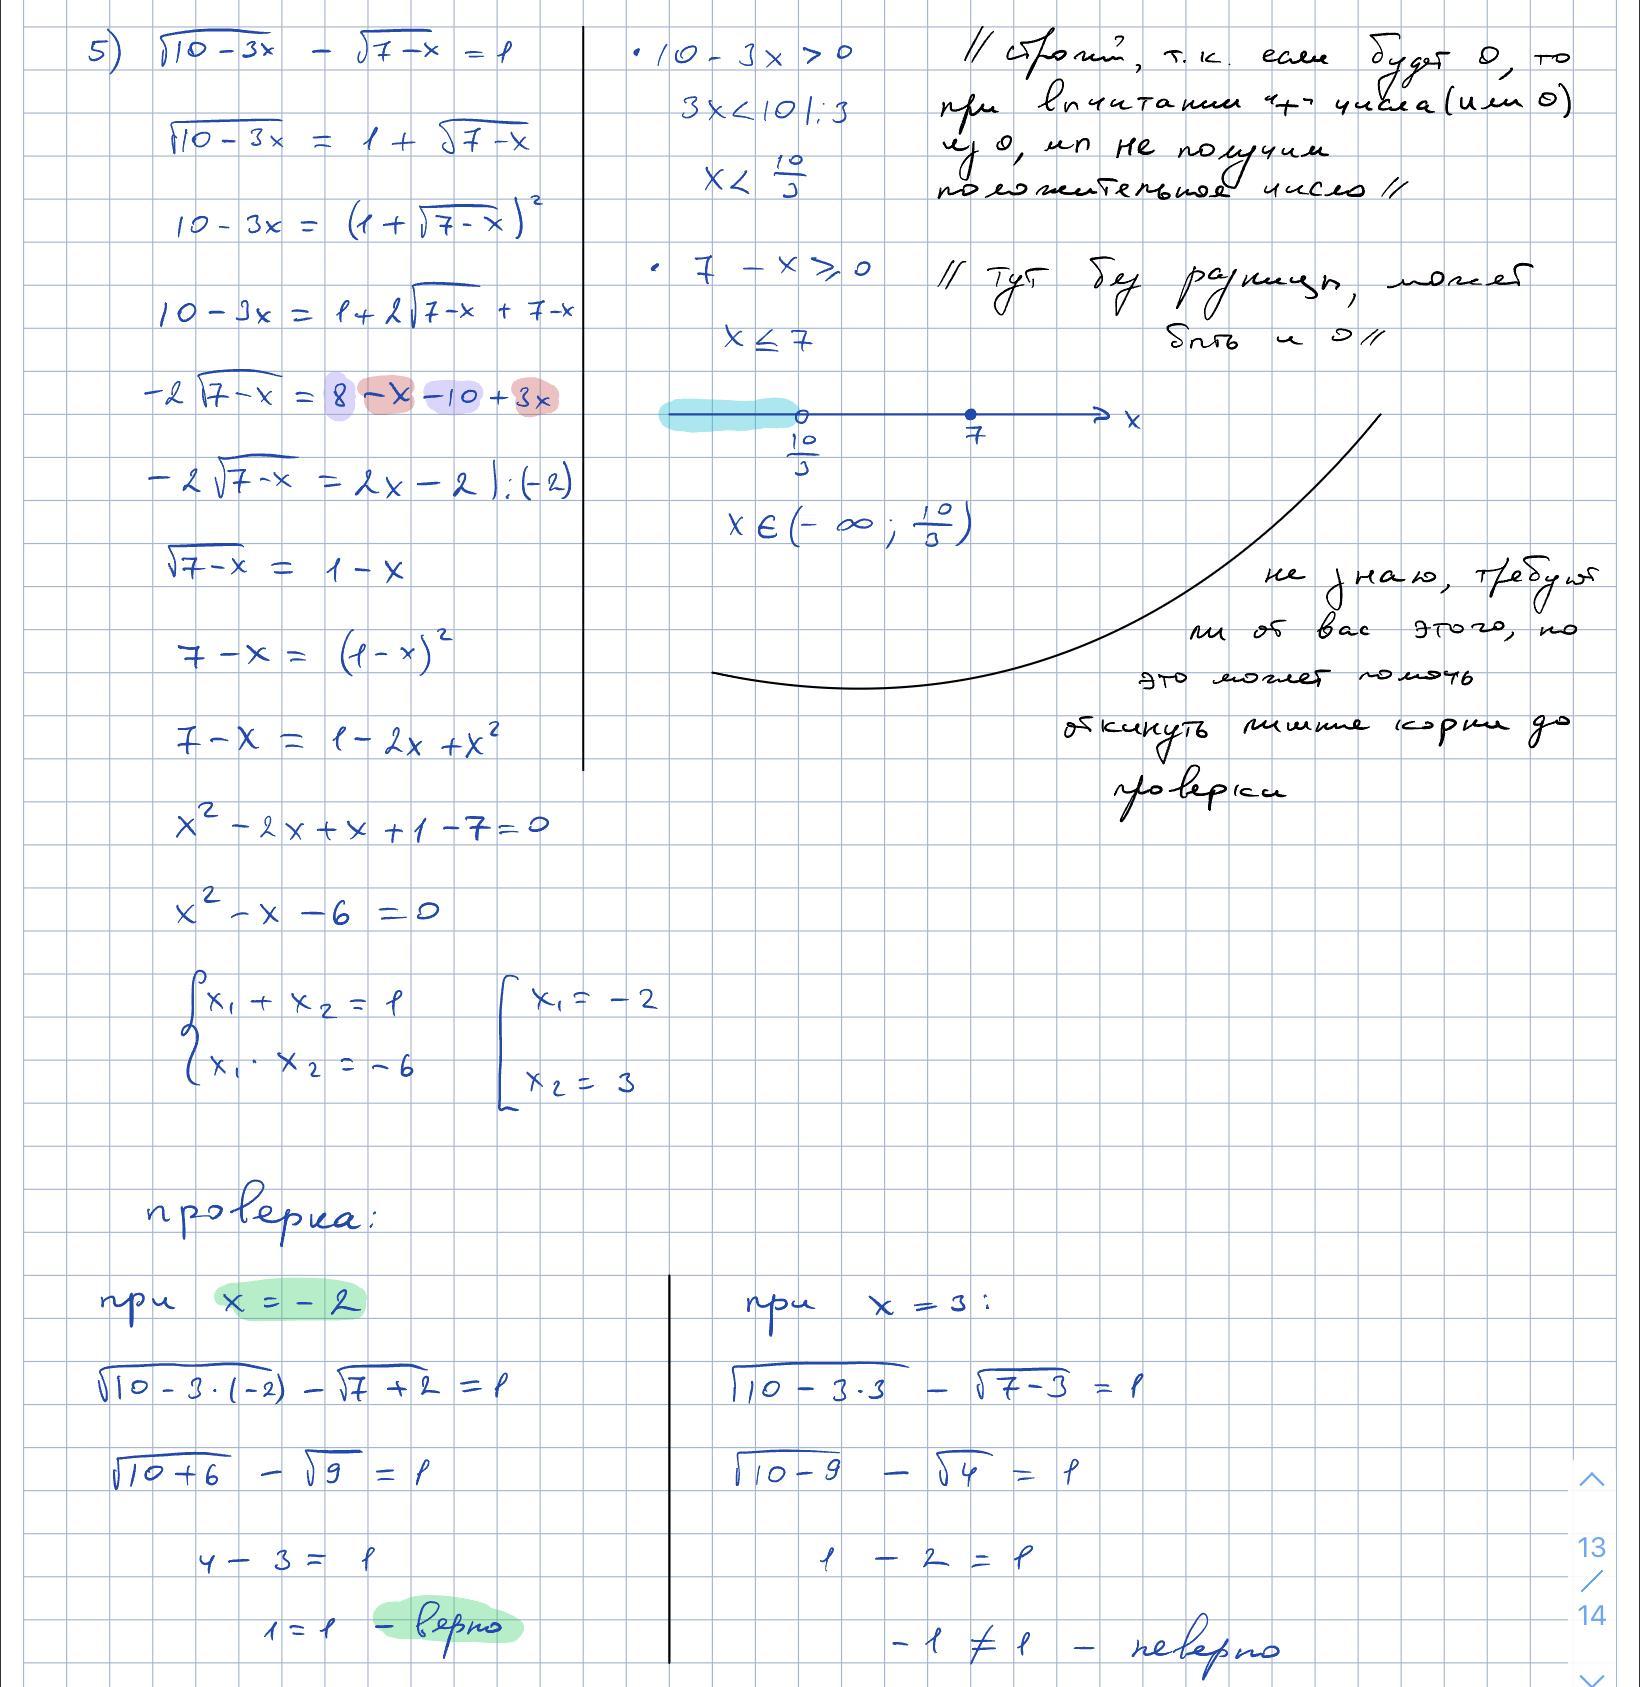 5) √(10-3x) - √(7-x) = 1
√(10-3x) = 1 + √(7-x)
10-3x = (1+√(7-x))²
10-3x = 1+2√(7-x) + 7-x
-2√(7-x) = 8-x-10+3x
-2√(7-x) = 2x-2 |:(-2)
√(7-x) = 1-x
7-x = (1-x)²
7-x = 1-2x+x²
x²-2x+x+1-7=0
x²-x-6=0
{ x₁ + x₂ = 1
x₁ · x₂ = -6
[ x₁ = -2
x₂ = 3
• 10-3x > 0
3x < 10 |:3
x < 10/3
• 7-x ⩾ 0
x ≤ 7
10/3 7 x
x ∈ (-∞; 10/3)
// строгий, т.к. если будет 0, то
при вычитании "+" числа (или 0)
из 0, мы не получим
положительное число //
// тут без разницы, может
быть и 0 //
не знаю, требуют
ли от вас этого, но
это может помочь
откинуть лишние корни до
проверки
проверка:
при x = -2
√(10-3·(-2)) - √(7+2) = 1
√(10+6) - √9 = 1
4-3 = 1
1=1 - верно
при x = 3:
√(10-3·3) - √(7-3) = 1
√(10-9) - √4 = 1
1 - 2 = 1
-1 ≠ 1 - неверно
13
/
14